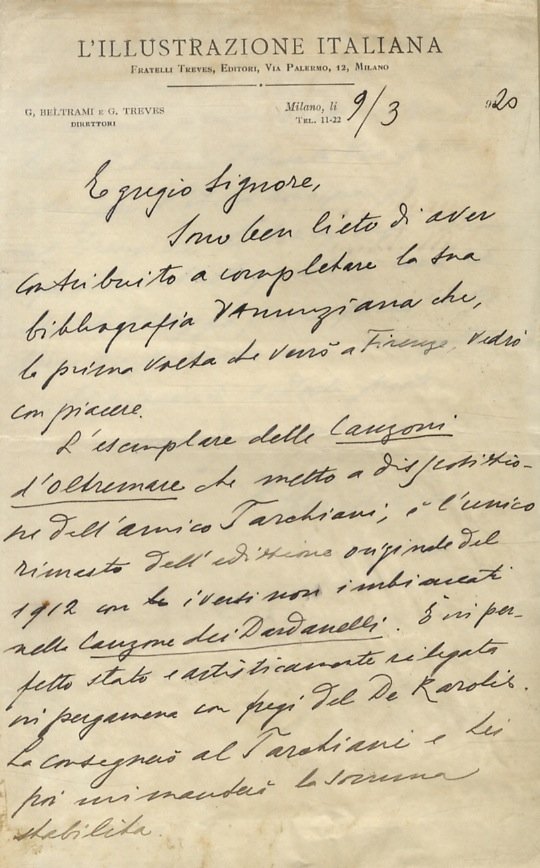 L'ILLUSTRAZIONE ITALIANA
FRATELLI TREVES, EDITORI, VIA PALERMO, 12, MILANO
G. BELTRAMI E G. TREVES
DIRETTORI
Milano, li 9/3 920
TEL. 11-22
Egregio Signore,
Sono ben lieto di aver
contribuito a completare la sua
bibliografia d'Annunziana che,
la prima volta che verrò a Firenze, vedrò
con piacere.
L'esemplare delle Canzoni
d'oltremare che metto a disposizio-
ne dell'amico Tarchiani, è l'unico
rimasto dell'edizione originale del
1912 con i versi non imbiancati
nella Canzone dei Dardanelli. È in per-
fetto stato e artisticamente rilegata
in pergamena con fregi del De Karolis.
La consegnerò al Tarchiani e Lei
poi mi manderà la somma
stabilita.